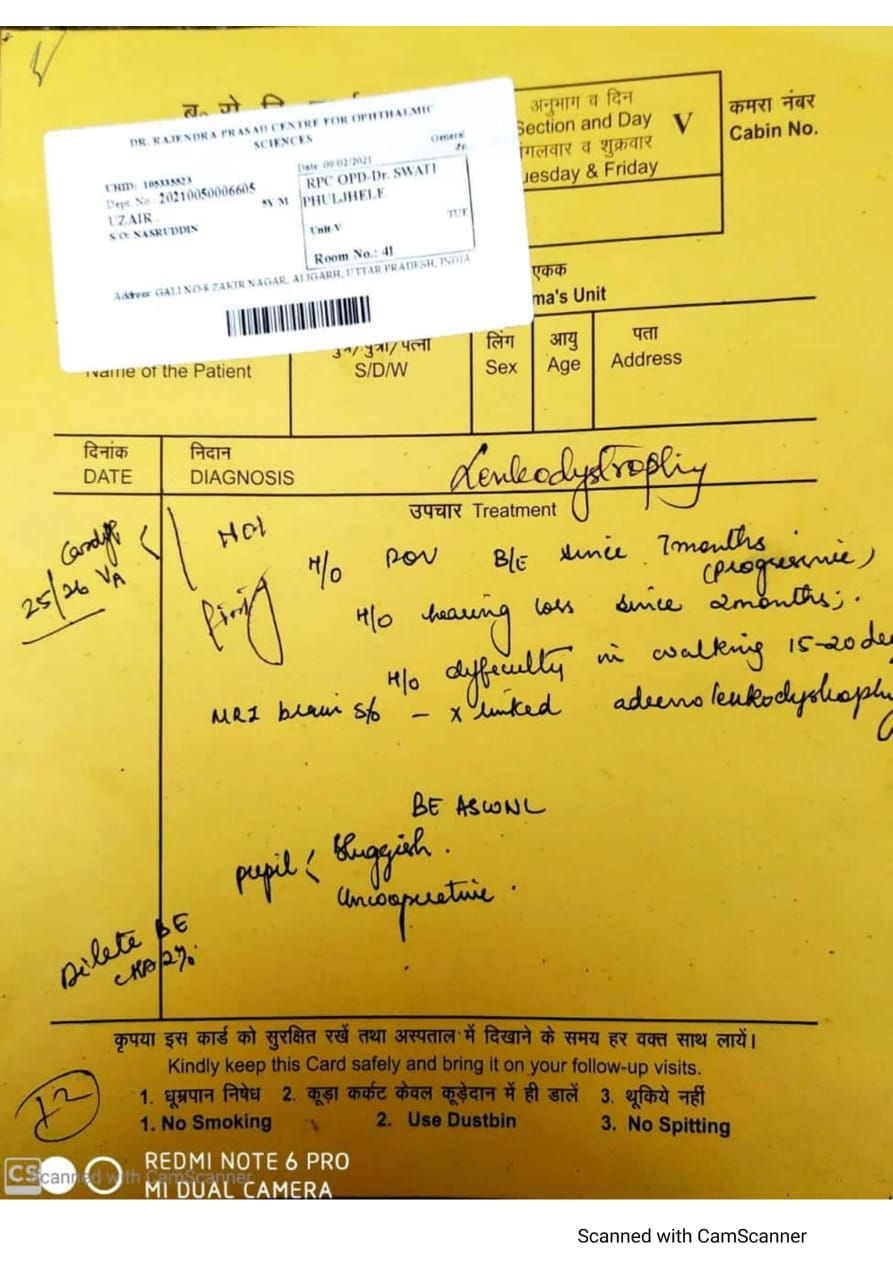 DR. RAJENDRA PRASAD CENTRE FOR OPHTHALMIC
SCIENCES
General
UHID: 105335523
Dept. No. 20210050006605
UZAIR 5Y/M
S/O: NASRUDDIN
Date 09/02/2021
RPC OPD-Dr. SWATI
PHULJHELE
TUF
Unit-V
Room No.: 41
Address: GALI NO-8 ZAKIR NAGAR, ALIGARH, UTTAR PRADESH, INDIA
अनुभाग व दिन
Section and Day V
गलवार व शुक्रवार
uesday & Friday
कमरा नंबर
Cabin No.
एकक
ma's Unit
Name of the Patient
पुत्र/पुत्री/पत्नी
S/D/W
लिंग
Sex
आयु
Age
पता
Address
दिनांक
DATE
निदान
DIAGNOSIS
Leukodystrophy
उपचार Treatment
25/26 VA
H/O DOV B/E since 7months
(progressive)
H/O hearing loss since 2months;.
H/O dyfeculty in walking 15-20 day
MRI brain s/o - x linked adrenoleukodystrophy
BE ASWNL
pupil < Sluggish.
Uncooperative.
Dilate BE
2%
कृपया इस कार्ड को सुरक्षित रखें तथा अस्पताल में दिखाने के समय हर वक्त साथ लायें।
Kindly keep this Card safely and bring it on your follow-up visits.
1. धूम्रपान निषेध 2. कूड़ा कर्कट केवल कूड़ेदान में ही डालें 3. थूकिये नहीं
1. No Smoking 2. Use Dustbin 3. No Spitting
REDMI NOTE 6 PRO
MI DUAL CAMERA
CS Scanned with CamScanner
Scanned with CamScanner